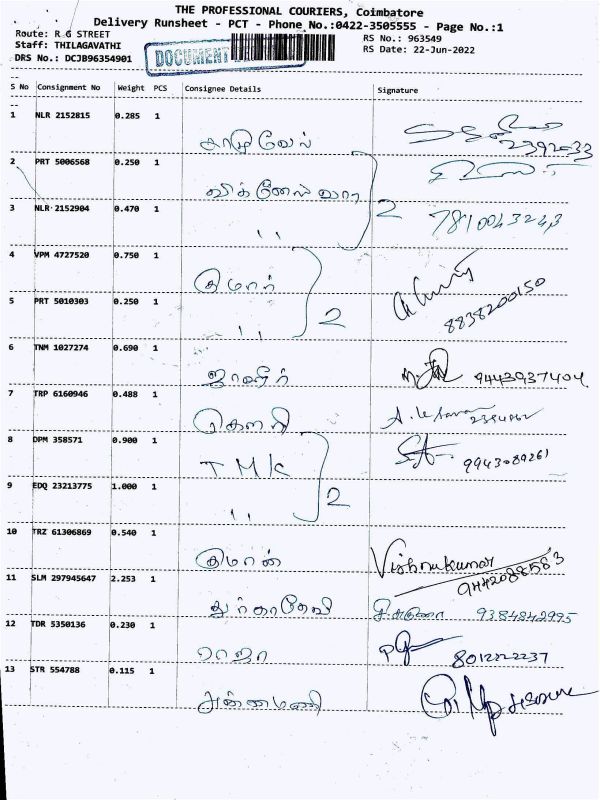 THE PROFESSIONAL COURIERS, Coimbatore
Delivery Runsheet - PCT - Phone No.:0422-3505555 - Page No.:1
Route: R G STREET
RS No.: 963549
Staff: THILAGAVATHI
RS Date: 22-Jun-2022
DRS No.: DCJB96354901
DOCUMENT
S No Consignment No Weight PCS Consignee Details Signature
1 NLR 2152815 0.285 1
2392033
2 PRT 5006568 0.250 1
3 NLR 2152904 0.470 1 ,, 2 7810043243
4 VPM 4727520 0.750 1 குமார்
5 PRT 5010303 0.250 1 ,, 2 8838200150
6 TNM 1027274 0.690 1 9443937404
7 TRP 6160946 0.488 1 கௌரி
8 DPM 358571 0.900 1 TMK 9943089261
9 EDQ 23213775 1.000 1 ,, 2
10 TRZ 61306869 0.540 1 Vishnukumar
9442088583
11 SLM 297945647 2.253 1 துர்காதேவி 9384842995
12 TDR 5350136 0.230 1 ராஜா 8012222237
13 STR 554788 0.115 1 அன்னமணி